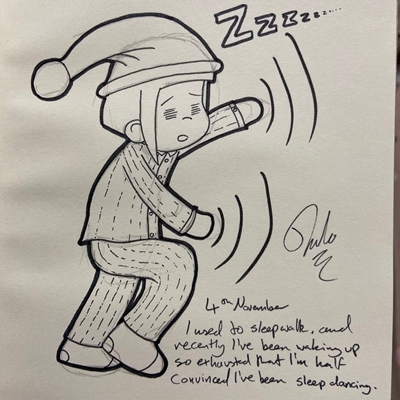 Zzzzzzz.....
4th November
I used to sleepwalk, and
recently I've been waking up
so exhausted that I'm half
convinced I've been sleep dancing.